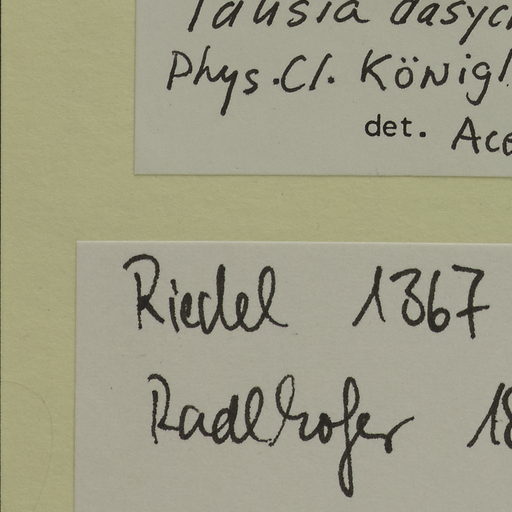 Tausia dasyc
Phys. Cl. Königl.
det. Ace
Riedel 1367
Radlkofer 18